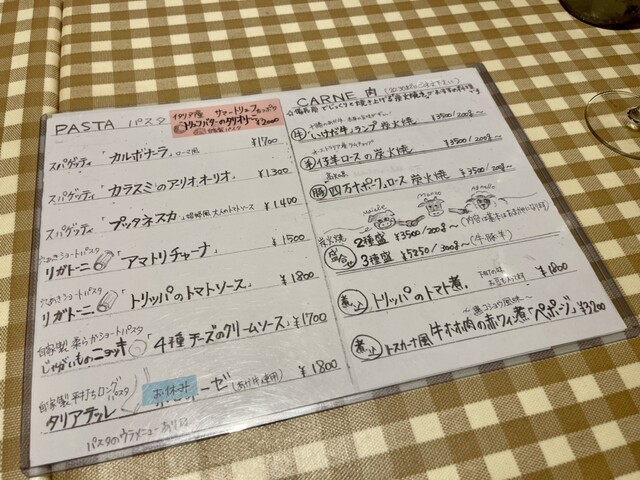 PASTA パスタ
イタリア産 サマートリュフ
トリュフバターのタリオリーニ
自家製パスタ ¥2000
スパゲッティ 「カルボナーラ」ローマ風 ¥1700
スパゲッティ 「カラスミのアーリオオーリオ」 ¥1300
スパゲッティ 「プッタネスカ」 大人のトマトソース ¥1400
穴あきショートパスタ
リガトーニ 「アマトリチャーナ」 ¥1500
穴あきショートパスタ
リガトーニ 「トリッパのトマトソース」 ¥1800
自家製 柔らかショートパスタ
じゃがいものニョッキ 「4種チーズのクリームソース」 ¥1700
自家製 平打ちロングパスタ
タリアテッレ お休み ーゼ」 ¥1800
パスタのウラメニューあり
CARNE 肉
牛 いけだ牛ランプ 炭火焼 ¥3500/200g〜
羊 仔羊ロースの炭火焼 ¥3500/200g〜
高知県
豚 四万十ポークロース 炭火焼 ¥3500/200g〜
炭火焼
盛合せ 2種盛 ¥3500/200g〜
3種盛 ¥5250/300g〜 (牛豚羊)
煮込 トリッパのトマト煮 ¥1800
〜黒コショウ風味〜
煮込 トスカーナ風 牛ホホ肉の赤ワイン煮「ペポーゾ」 ¥3200